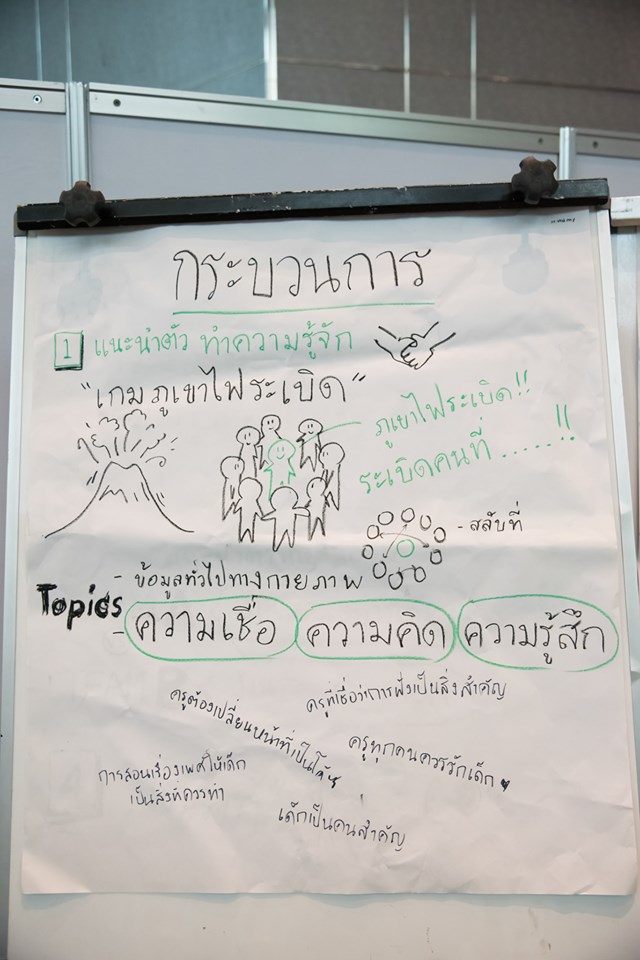 กระบวนการ
1 แนะนำตัว ทำความรู้จัก
"เกมภูเขาไฟระเบิด"
ภูเขาไฟระเบิด!!
ระเบิดคนที่ .....!!
- สลับที่
- ข้อมูลทั่วไปทางกายภาพ
Topics
- ความเชื่อ ความคิด ความรู้สึก
ครูที่เชื่อว่าการฟังเป็นสิ่งสำคัญ
ครูต้องเปลี่ยนหน้าที่เป็นโค้ช
ครูทุกคนควรรักเด็ก
การสอนเรื่องเพศให้เด็ก
เป็นสิ่งที่ควรทำ
เด็กเป็นคนสำคัญ